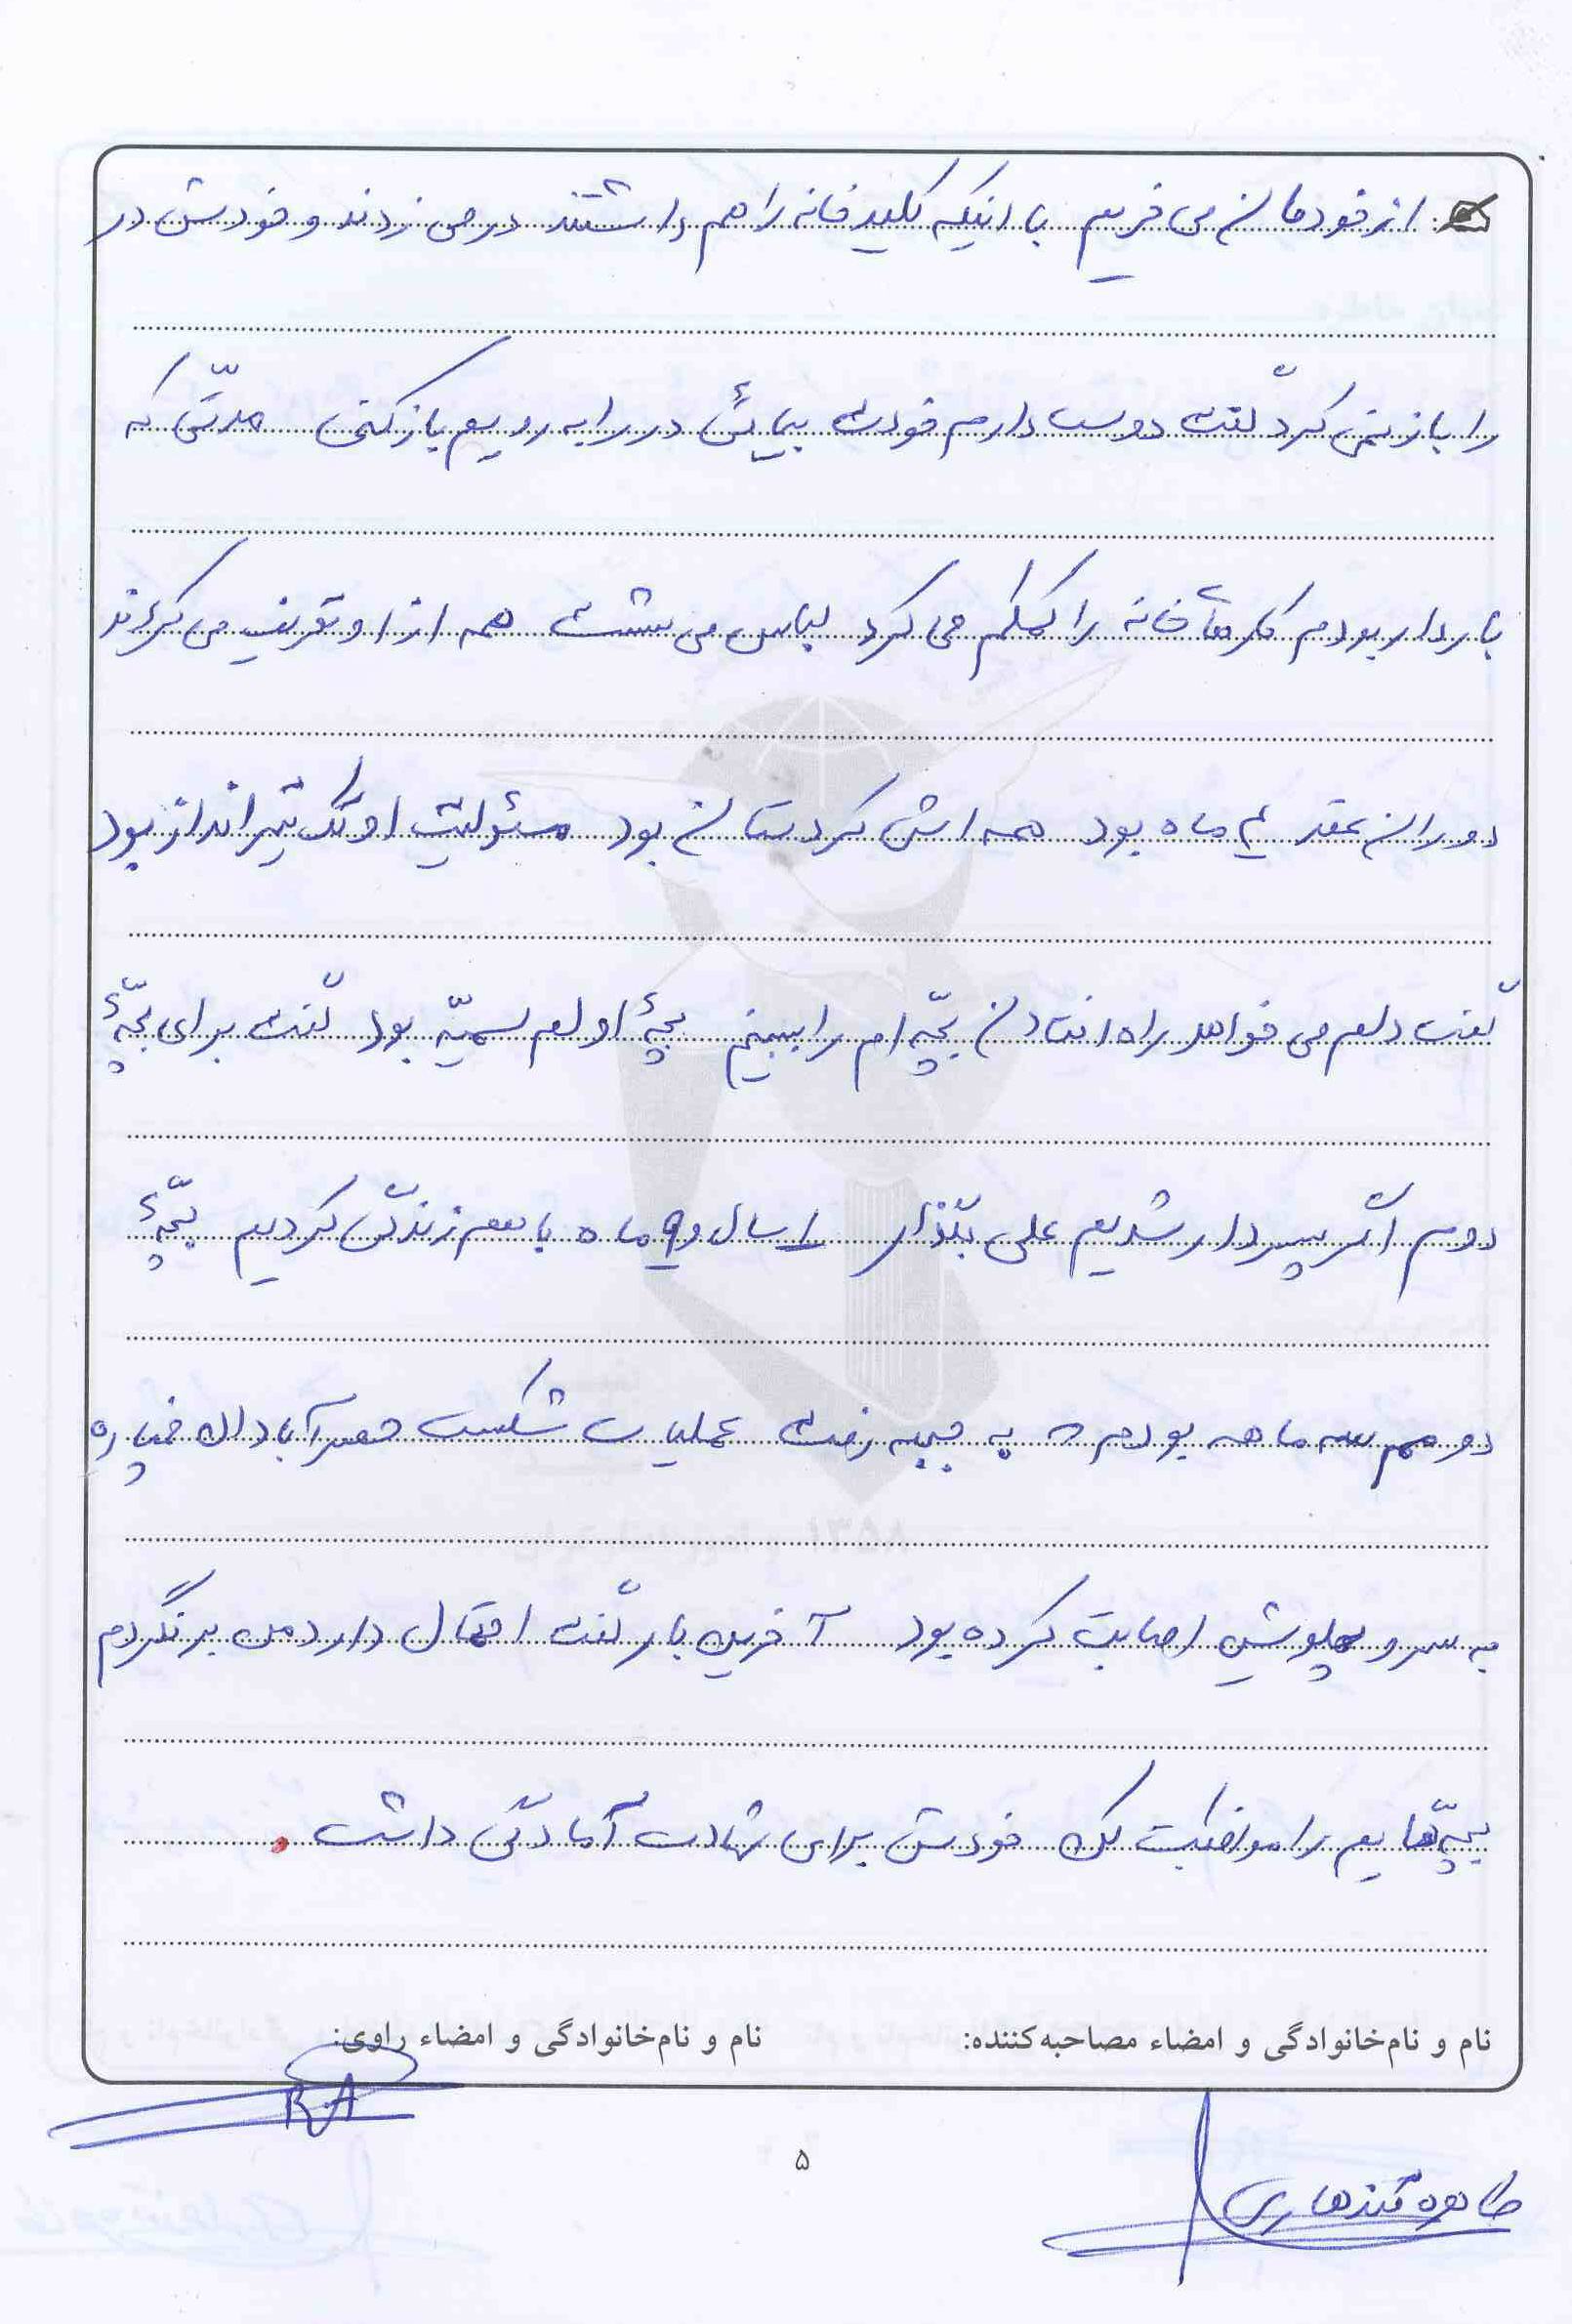 از خودمان می خریم با اینکه کلید خانه را هم داشتند در می زدند و خودش در
را باز نمی کرد گفت دوست دارم خودت بیائی در را به رویم باز کنی مدتّی که
باردار بودم کارهای خانه را کمکم می کرد لباس می شست همه از او تعریف می کردند
دوران عقد ۴ ماه بود همه اش کردستان بود مسئولیت او تک تیرانداز بود
گفت دلم می خواهد راه افتادن بچّه ام را ببینم بچّهٔ اولم سمیّه بود گفت برای بچّهٔ
دوم اگر پسر دار شدیم علی بگذار ۱ سال و ۹ ماه با هم زندگی کردیم بچّهٔ
دومم سه ماهه بودم که به جبهه رفت عملیات شکست حصر آبادان خمپاره
به سر و پهلویش اصابت کرده بود آخرین بار گفت احتمال دارد من برنگردم
بچّه هایم را مواظبت کن خودش برای شهادت آمادگی داشت .
نام و نام‌خانوادگی و امضاء مصاحبه‌کننده: نام و نام‌خانوادگی و امضاء راوی:
R.A
طاهره قندهاری
۵